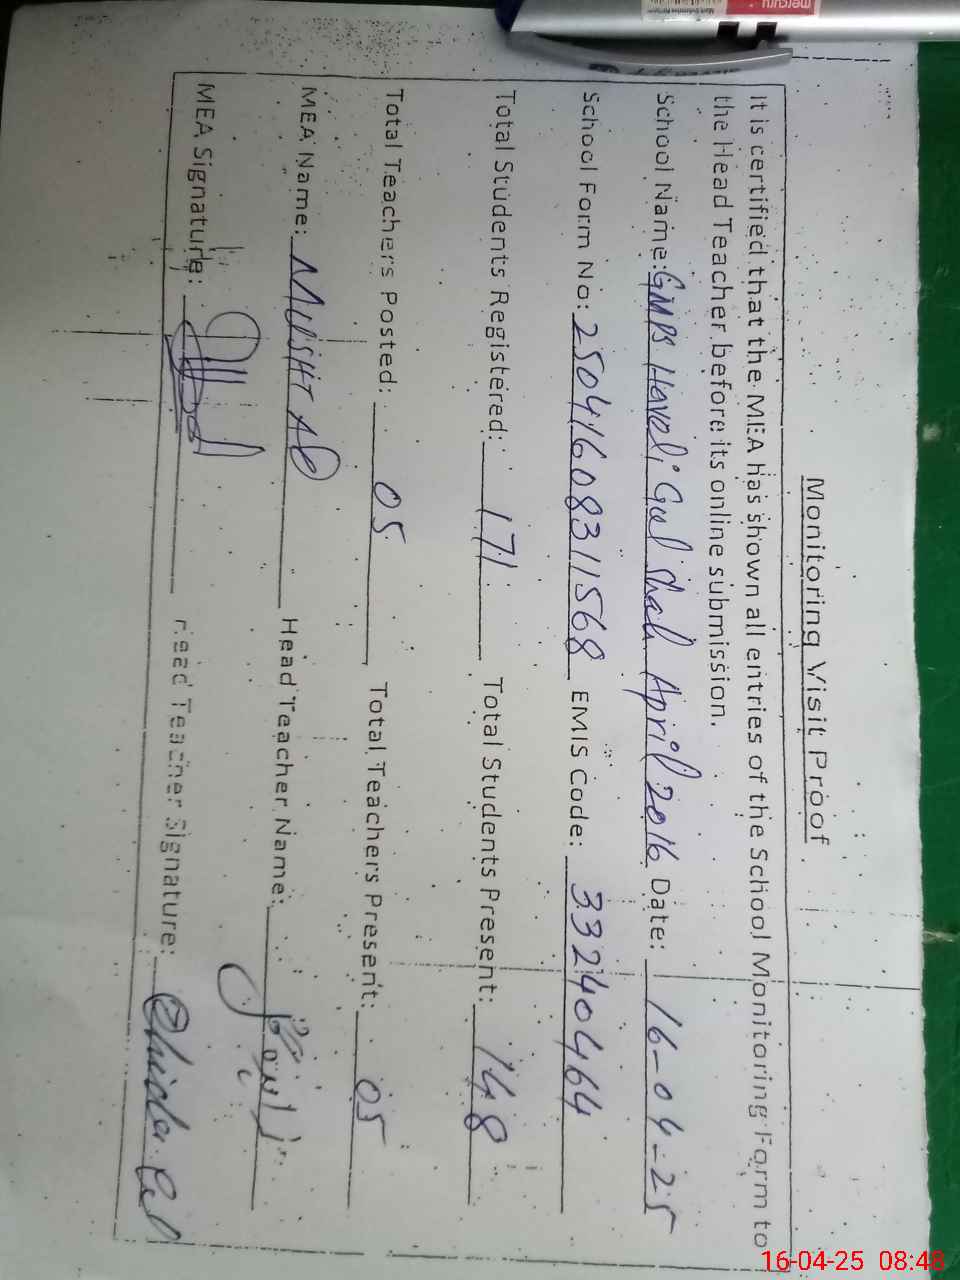 Monitoring Visit Proof
It is certified that the MEA has shown all entries of the School Monitoring Form to
the Head Teacher before its online submission.
School Name: GMPS Haveli Gul Shah April 2016 Date: 16-04-25
School Form No: 25041608311568 EMIS Code: 33240464
Total Students Registered: 171 Total Students Present: 148
Total Teachers Posted: 05 Total Teachers Present: 05
MEA Name: MUSHTAQ Head Teacher Name:
MEA Signature: Head Teacher Signature:
mercury
16-04-25 08:48